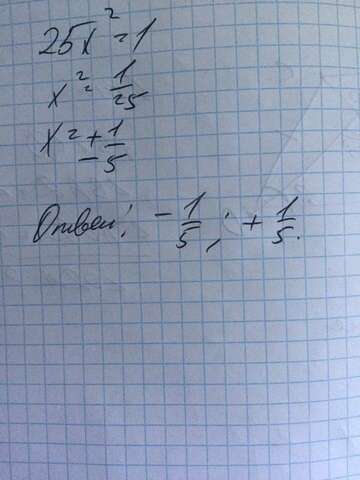 25x² = 1
x² = 1/25
x = ± 1/5
Ответ: - 1/5 ; + 1/5.